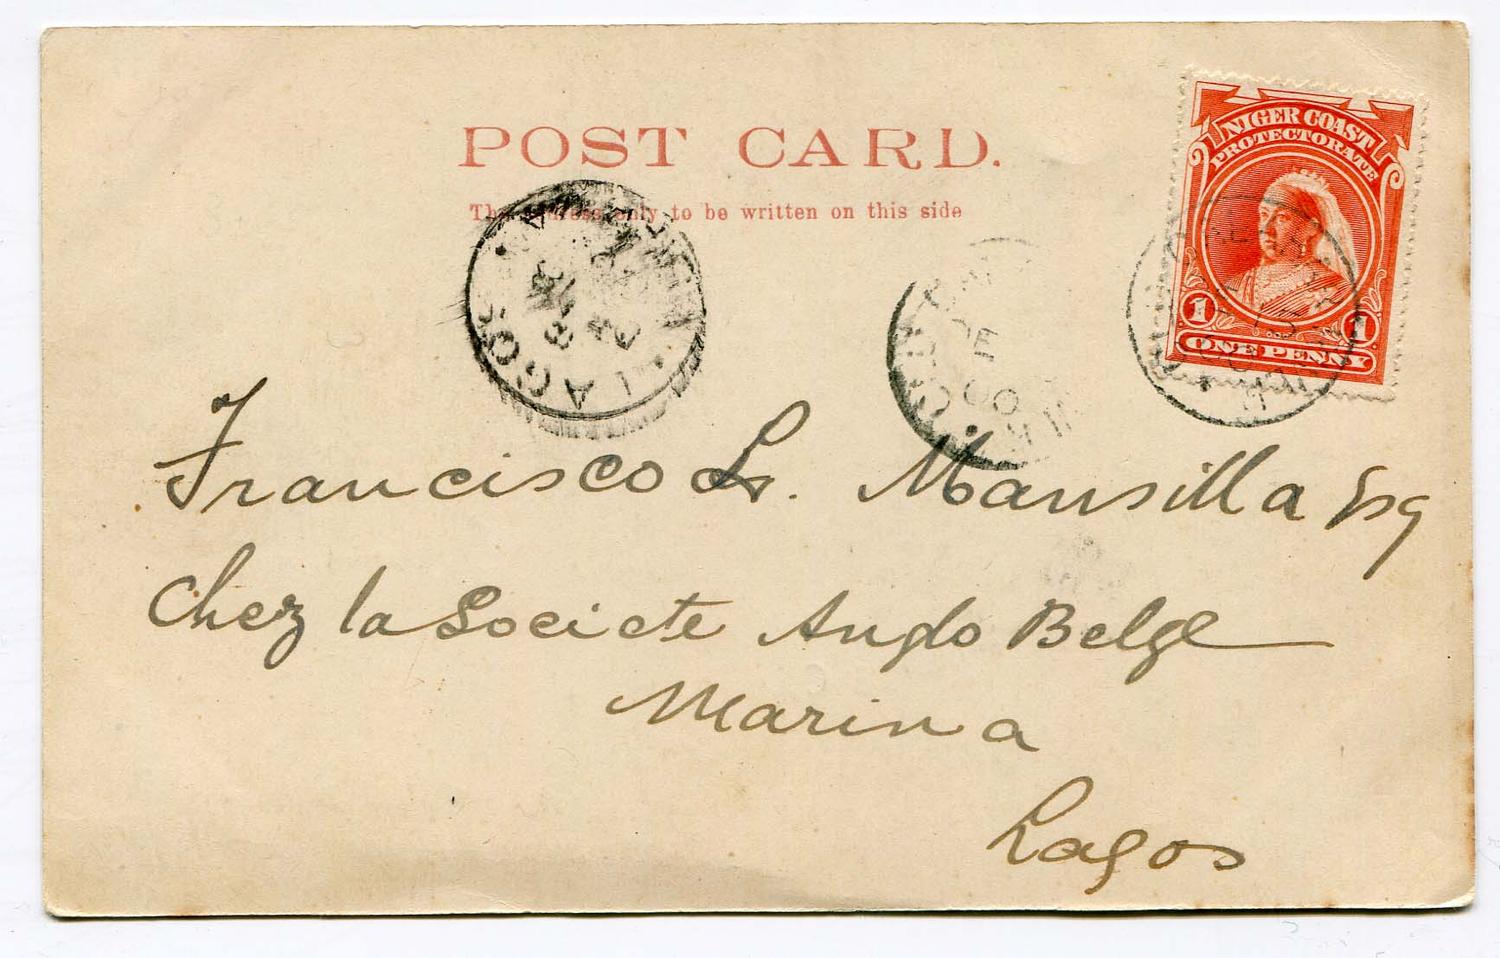 POST CARD.
The address only to be written on this side
NIGER COAST
PROTECTORATE
1 1
ONE PENNY
LAGOS
DE
00
Francisco L. Mansilla Esq
Chez la Societe Anglo Belge
Marina
Lagos